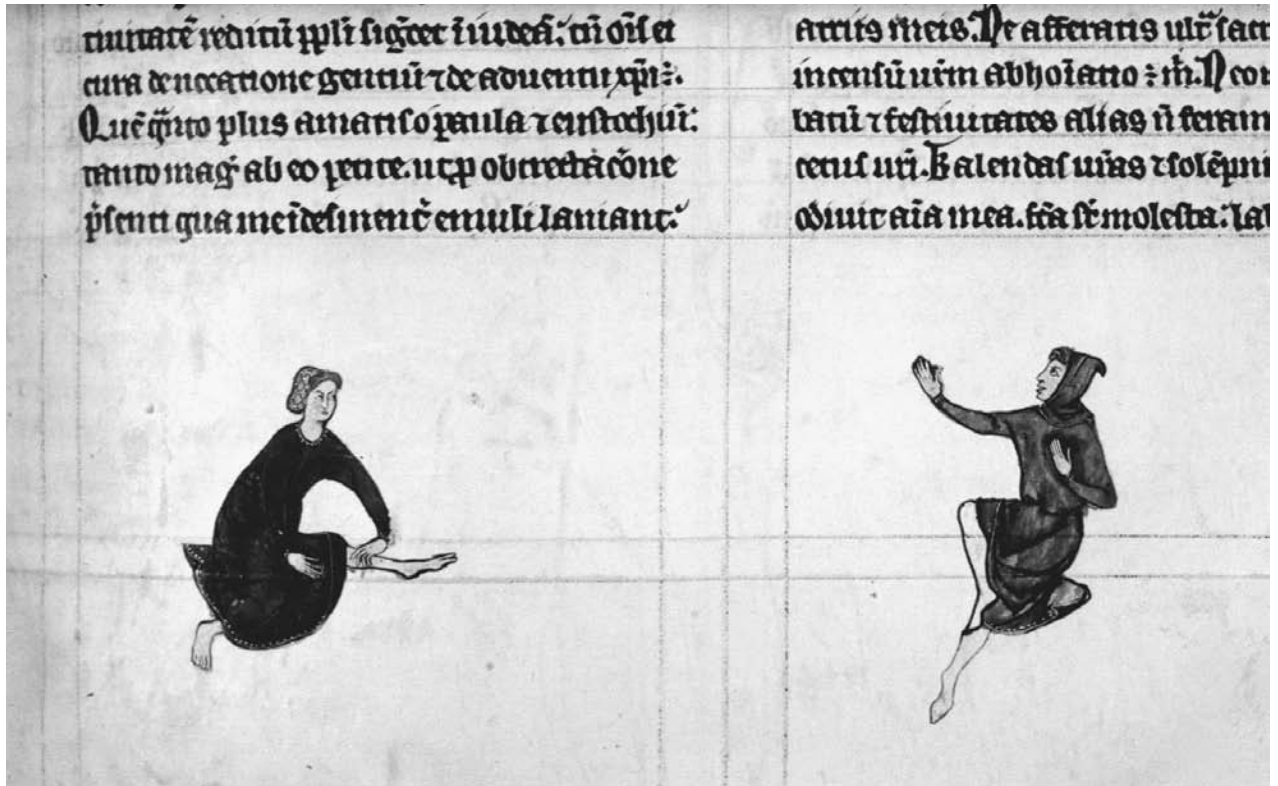 tiuitatē reditū ppl̄i sigc̄et ī iudeā; tū oīs ei
cura de uocatione gentiū ⁊ de aduentu xp̄i ÷.
Quē q̄nto plus amatis o paula ⁊ eustochiū:
tanto maḡ ab eo petite. ut ꝓ obtrectac̄one
p̄senti qua me īdesinent̄ emuli laniant:
atriis meis. Ne afferatis ult̄ sacr
incensū abhoīatio ÷ m̄. Neom
batū ⁊ festiuitates alias n̄ feram
cetus ur̄i. Kalendas ur̄as ⁊ solēpni
odiuit aīa mea. fc̄a st̄ molesta: lab